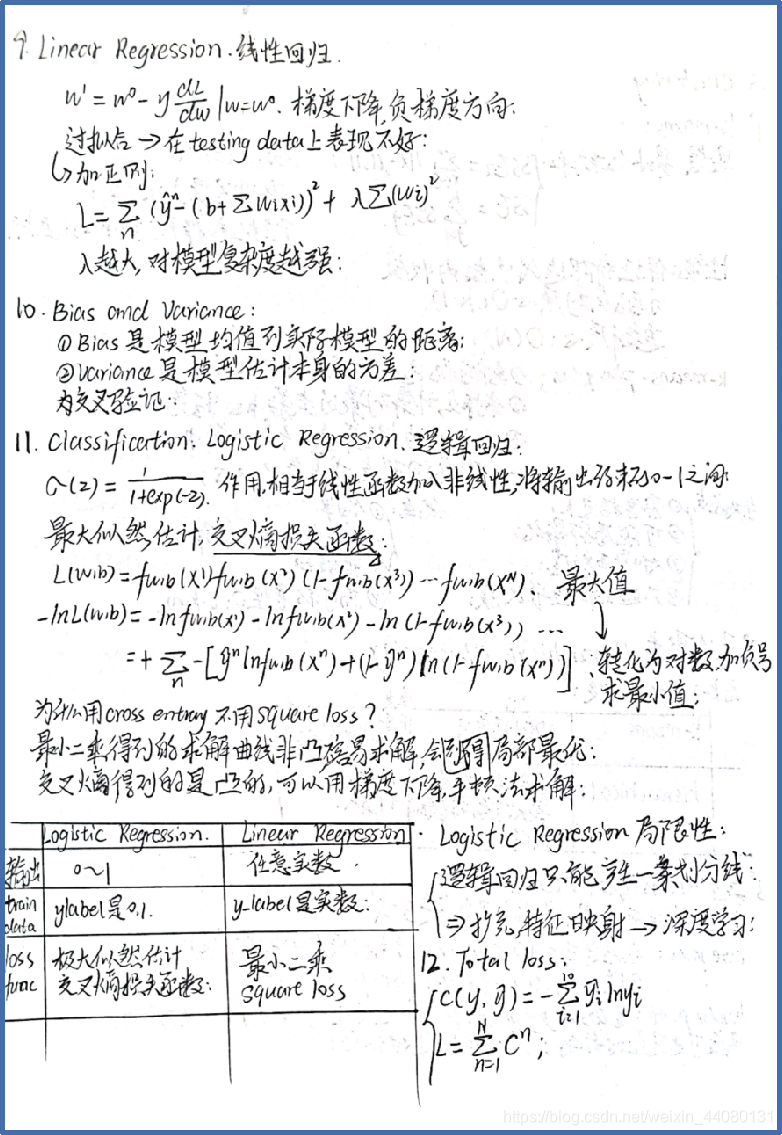 9. Linear Regression. 线性回归.
w' = w⁰ - y dL/dw |w=w⁰. 梯度下降,负梯度方向:
过拟合 → 在testing data上表现不好:
↳加正则:
L = Σn (ŷⁿ-(b+Σwixi))² + λΣ(wi)²
λ越大,对模型复杂度越强:
10. Bias and Variance:
①Bias是模型均值到实际模型的距离:
②Variance是模型估计本身的方差:
为交叉验证.
11. Classification: Logistic Regression. 逻辑回归:
σ(z) = 1/(1+exp(-z)). 作用,相当于线性函数加入非线性,将输出约束到0-1之间:
最大似然估计,交叉熵损失函数:
L(w,b) = fw,b(x¹)fw,b(x²)(1-fw,b(x³))…fw,b(xᴺ)、 最大值
-lnL(w,b) = -lnfw,b(x¹) - lnfw,b(x²) - ln(1-fw,b(x³)) …
= + Σn -[ŷⁿlnfw,b(xⁿ)+(1-ŷⁿ)ln(1-fw,b(xⁿ))] 转化为对数,加负号
求最小值:
为什么用cross entropy 不用square loss?
最小二乘得到的求解曲线非凸,容易求解,会得局部最优:
交叉熵得到的是凸的,可以用梯度下降,牛顿法求解:
Logistic Regression. Linear Regression
输出 0~1 任意实数.
train data ylabel是0,1. y-label是实数:
loss func 极大似然估计 交叉熵损失函数: 最小二乘 square loss
· Logistic Regression 局限性:
逻辑回归只能产生一条划分线:
⇒扩充,特征映射→深度学习:
12. Total loss:
C(y,ŷ) = -Σi=1 ŷi lnyi
L = Σn=1ᴺ Cⁿ;
https://blog.csdn.net/weixin_44080131